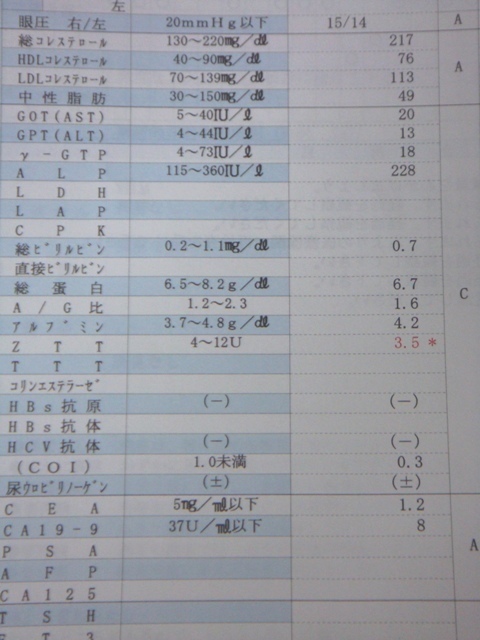 左
眼圧 右/左 20mmHg以下 15/14 A
総ｺﾚｽﾃﾛｰﾙ 130～220㎎/㎗ 217
HDLｺﾚｽﾃﾛｰﾙ 40～90㎎/㎗ 76 A
LDLｺﾚｽﾃﾛｰﾙ 70～139㎎/㎗ 113
中性脂肪 30～150㎎/㎗ 49
GOT(AST) 5～40IU/ℓ 20
GPT(ALT) 4～44IU/ℓ 13
γ-GTP 4～73IU/ℓ 18
ALP 115～360IU/ℓ 228
LDH
LAP
CPK
総ﾋﾞﾘﾙﾋﾞﾝ 0.2～1.1㎎/㎗ 0.7
直接ﾋﾞﾘﾙﾋﾞﾝ
総蛋白 6.5～8.2g/㎗ 6.7
A/G比 1.2～2.3 1.6 C
アルブミン 3.7～4.8g/㎗ 4.2
ZTT 4～12U 3.5 *
TTT
ｺﾘﾝｴｽﾃﾗｰｾﾞ
HBs抗原 (－) (－)
HBs抗体
HCV抗体 (－) (－)
(COI) 1.0未満 0.3
尿ｳﾛﾋﾞﾘﾉｰｹﾞﾝ (±) (±)
CEA 5ng/㎖以下 1.2
CA19-9 37U/㎖以下 8
PSA A
AFP
CA125
TSH